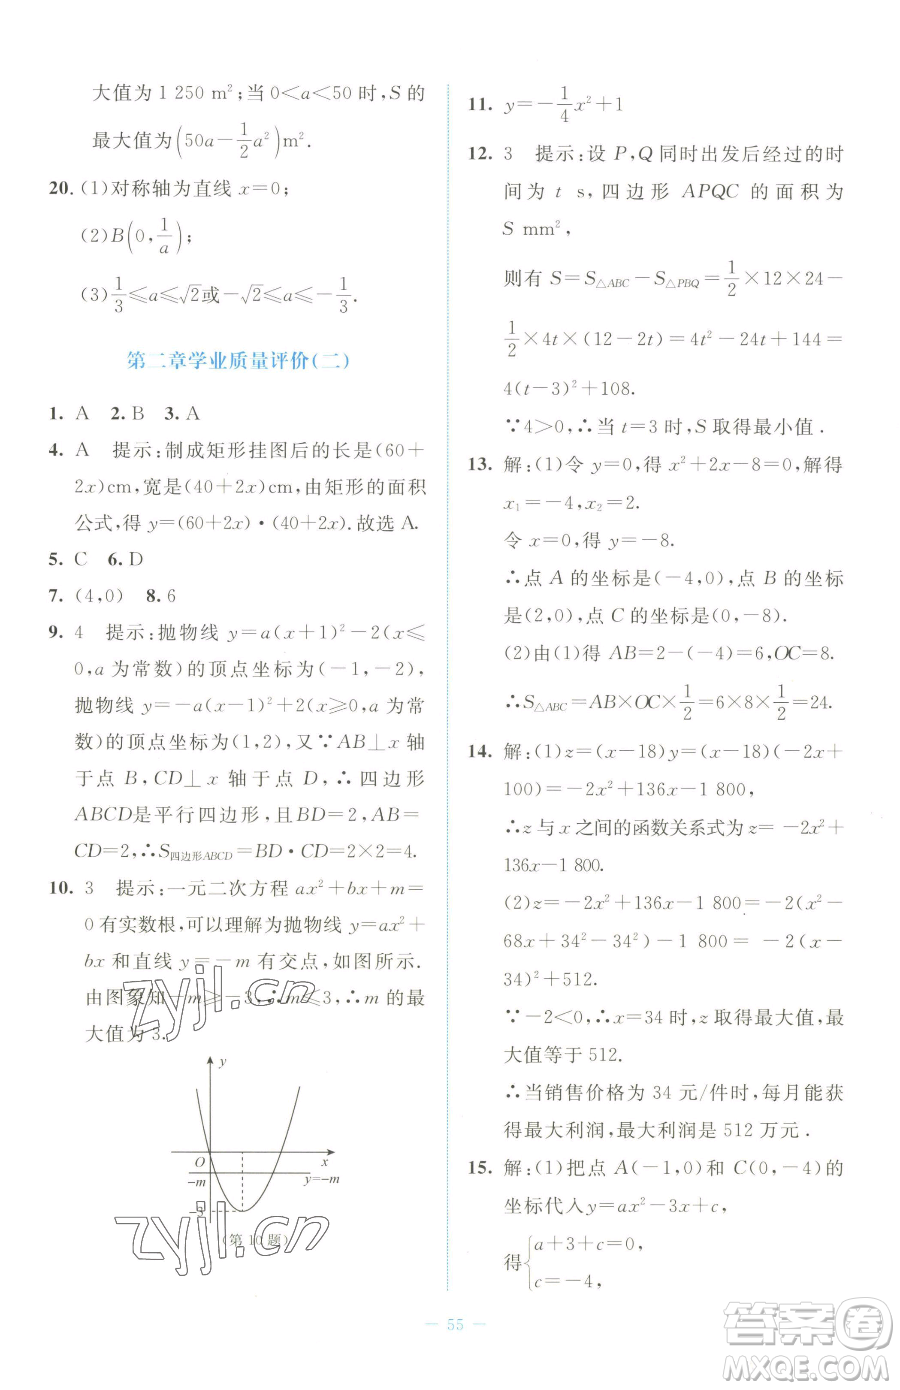 大值为1 250 m²;当0<a<50时,S的
最大值为(50a-1/2a²)m².
20. (1)对称轴为直线x=0;
(2)B(0,1/a);
(3)1/3≤a≤√2或-√2≤a≤-1/3.
第二章学业质量评价(二)
1. A 2. B 3. A
4. A 提示:制成矩形挂图后的长是(60+
2x)cm,宽是(40+2x)cm,由矩形的面积
公式,得y=(60+2x)·(40+2x).故选A.
5. C 6. D
7. (4,0) 8. 6
9. 4 提示:抛物线y=a(x+1)²-2(x≤
0,a为常数)的顶点坐标为(-1,-2),
抛物线y=-a(x-1)²+2(x≥0,a为常
数)的顶点坐标为(1,2),又∵AB⊥x轴
于点B,CD⊥x轴于点D,∴四边形
ABCD是平行四边形,且BD=2,AB=
CD=2,∴S四边形ABCD=BD·CD=2×2=4.
10. 3 提示:一元二次方程ax²+bx+m=
0有实数根,可以理解为抛物线y=ax²+
bx和直线y=-m有交点,如图所示.
由图象知-m≥-3,∴m≤3,∴m的最
大值为3.
y
O
x
-m
y=-m
-3
(第10题)
zyjl.cn
zyjl.cn
11. y=-1/4x²+1
12. 3 提示:设P,Q同时出发后经过的时
间为t s,四边形APQC的面积为
S mm²,
则有S=S△ABC-S△PBQ=1/2×12×24-
1/2×4t×(12-2t)=4t²-24t+144=
4(t-3)²+108.
∵4>0,∴当t=3时,S取得最小值.
13. 解:(1)令y=0,得x²+2x-8=0,解得
x₁=-4,x₂=2.
令x=0,得y=-8.
∴点A的坐标是(-4,0),点B的坐标
是(2,0),点C的坐标是(0,-8).
(2)由(1)得AB=2-(-4)=6,OC=8.
∴S△ABC=AB×OC×1/2=6×8×1/2=24.
14. 解:(1)z=(x-18)y=(x-18)(-2x+
100)=-2x²+136x-1 800,
∴z与x之间的函数关系式为z=-2x²+
136x-1 800.
(2)z=-2x²+136x-1 800=-2(x²-
68x+34²-34²)-1 800=-2(x-
34)²+512.
∵-2<0,∴x=34时,z取得最大值,最
大值等于512.
∴当销售价格为34元/件时,每月能获
得最大利润,最大利润是512万元.
15. 解:(1)把点A(-1,0)和C(0,-4)的
坐标代入y=ax²-3x+c,
得{a+3+c=0,
c=-4,
— 55 —
答案圈
MXQE.COM